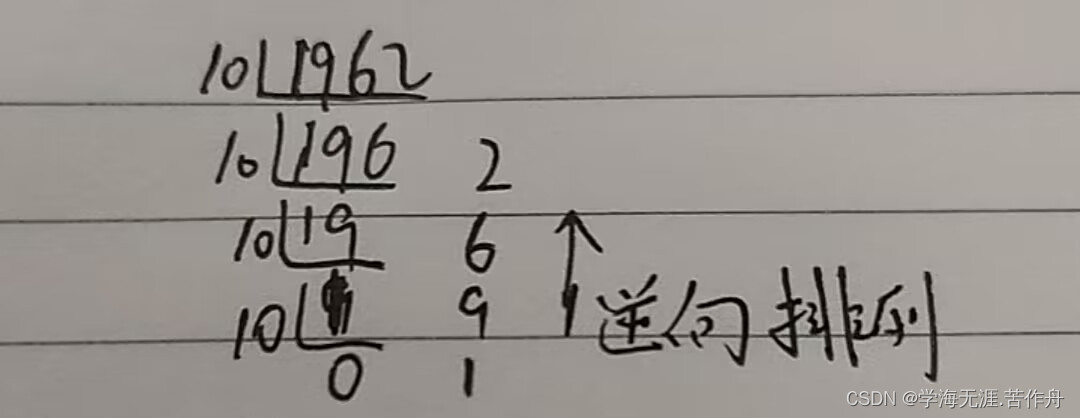 10 1962
10 196 2
10 19 6
10 1 9
0 1
逆向排列
CSDN @学海无涯.苦作舟